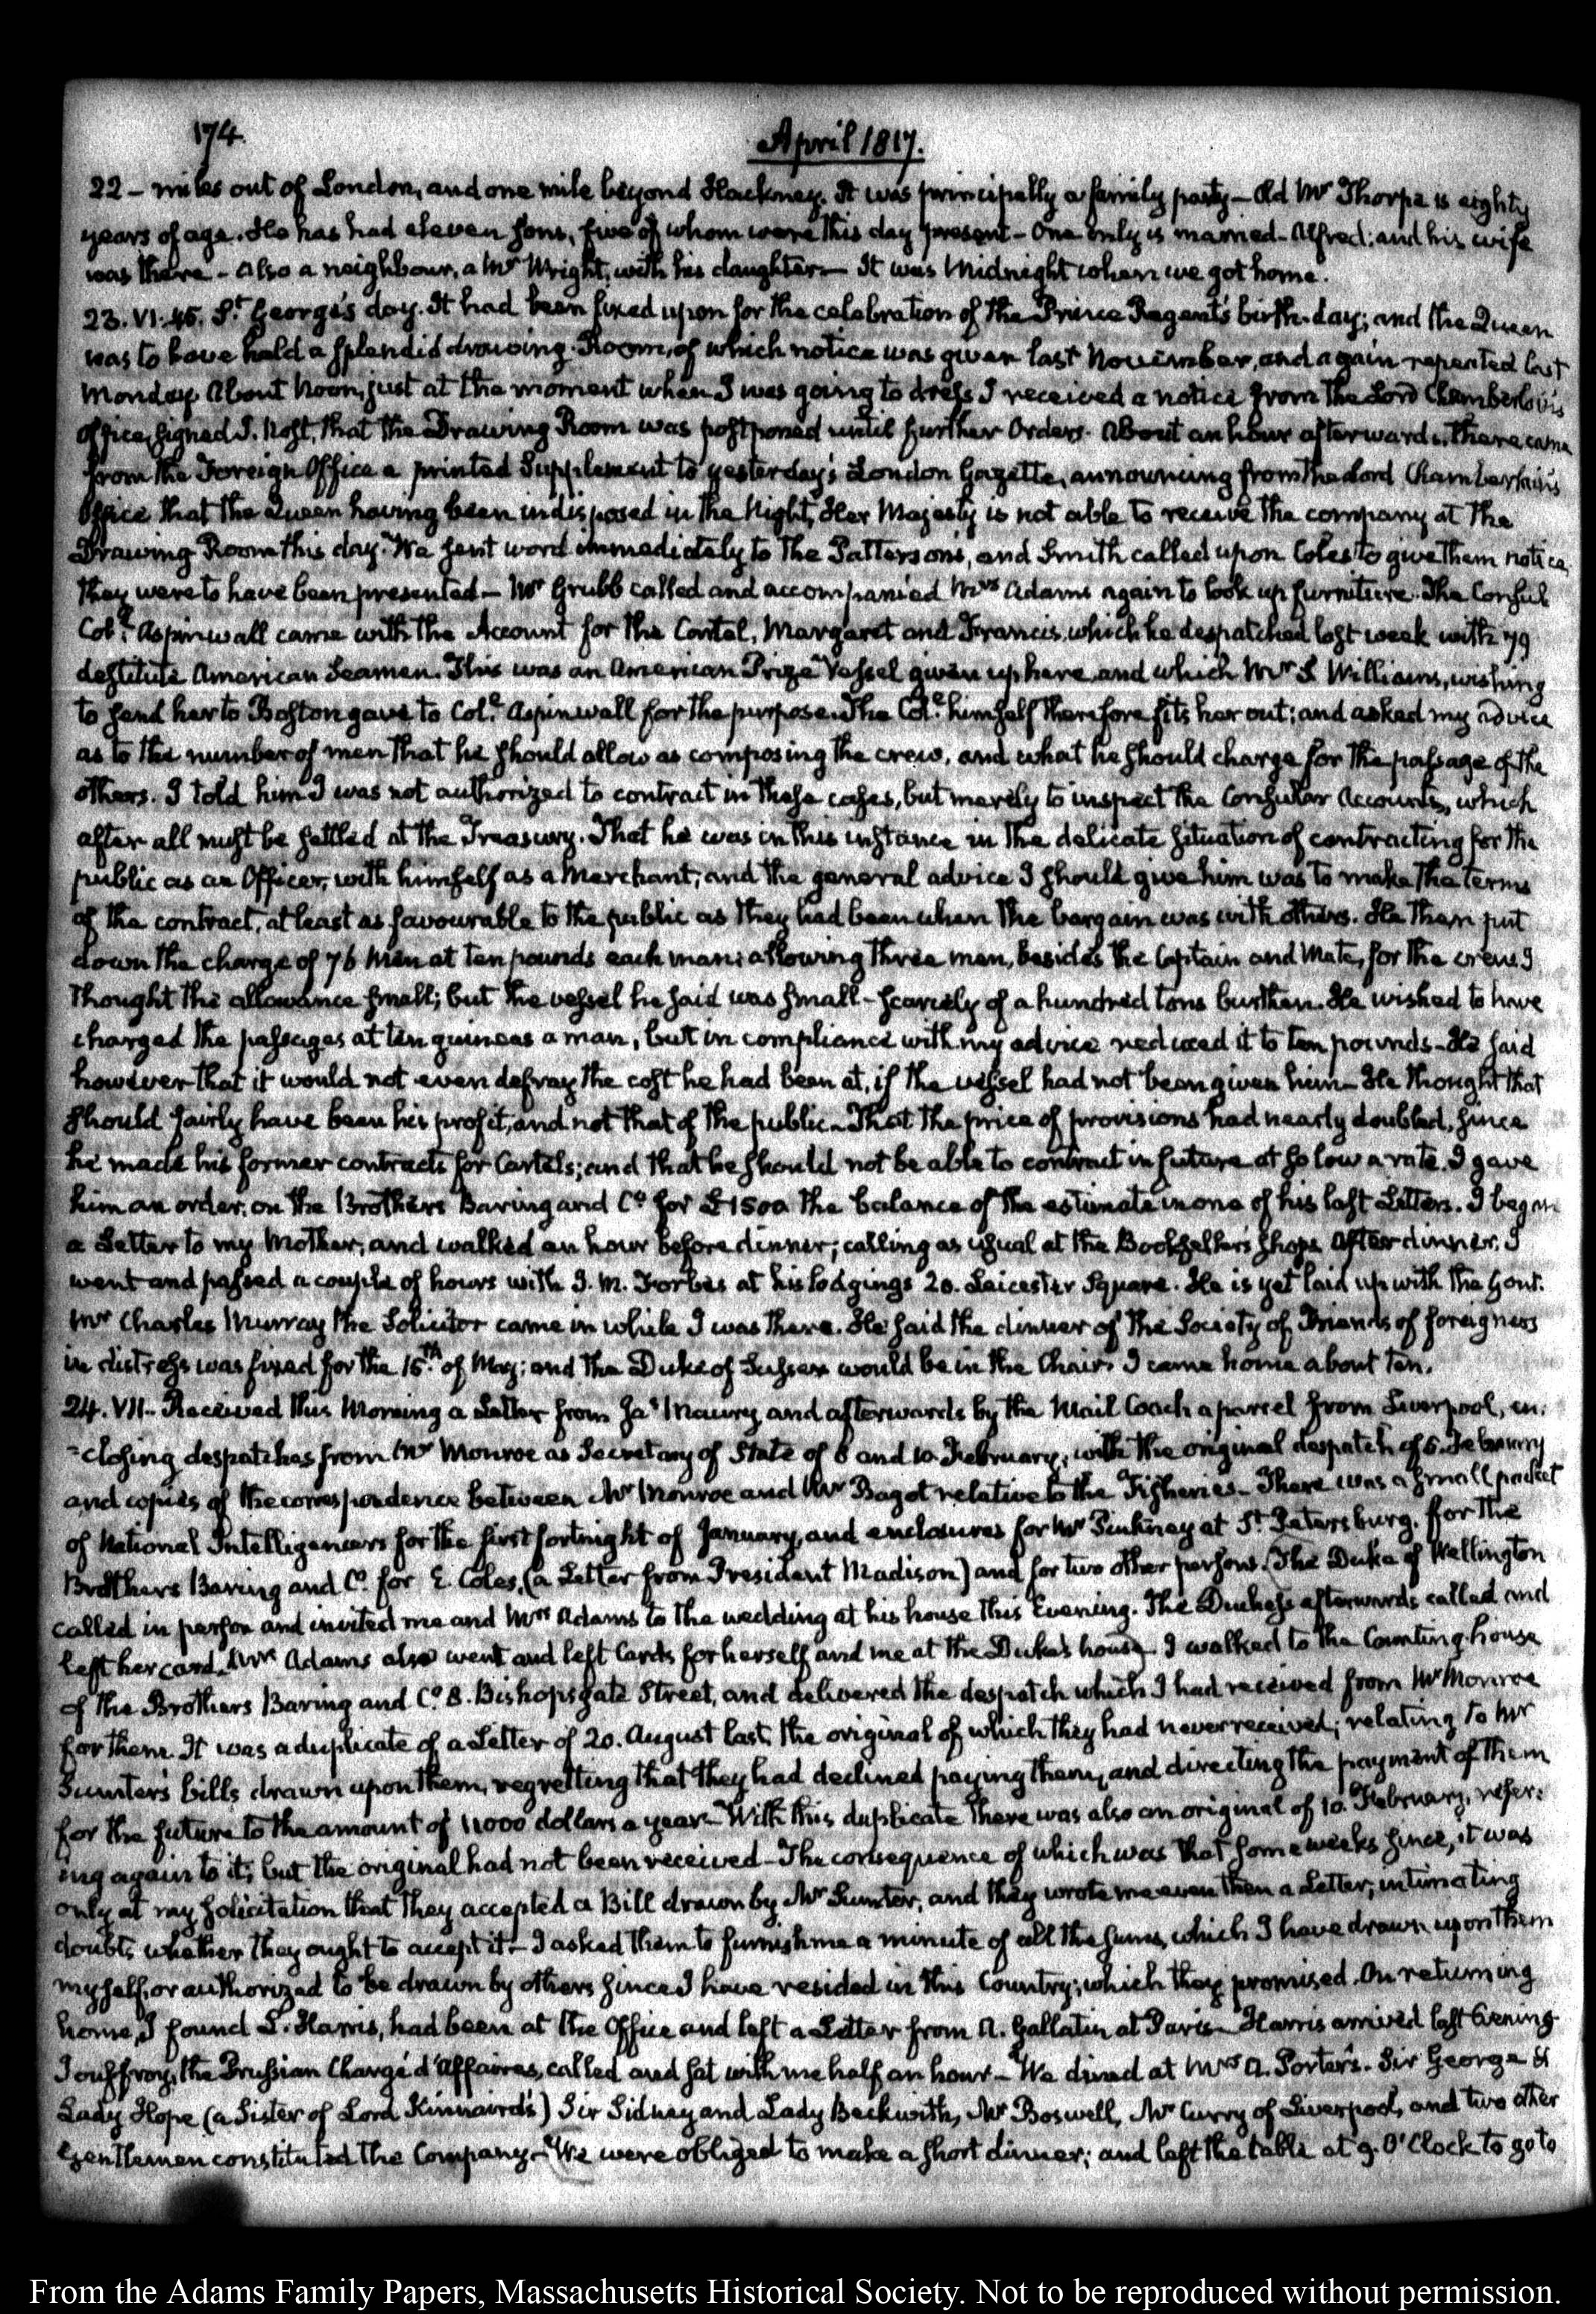 174.
April 1817.
22 - miles out of London, and one mile beyond Hackney. It was principally a family party - Old Mr Thorpe is eighty
years of age. He has had eleven Sons, five of whom were this day present - One only is married - Alfred; and his wife
was there - Also a neighbour, a Mr Wright, with his daughter - It was Midnight when we got home.
23. VI. 45. St. George's day. It had been fixed upon for the celebration of the Prince Regent's birth-day; and the Queen
was to have held a splendid drawing-Room, of which notice was given last November, and again repeated last
Monday. About Noon, just at the moment when I was going to dress I received a notice from the Lord Chamberlain's
Office, signed J. Nost, that the Drawing Room was postponed until further Orders. About an hour afterwards, there came
from the Foreign Office a printed Supplement to yesterday's London Gazette, announcing from the Lord Chamberlain's
Office that the Queen having been indisposed in the Night, Her Majesty is not able to receive the company at the
Drawing Room this day. We sent word immediately to the Patterson's, and Smith called upon Coles to give them notice
they were to have been presented - Mr Grubb called and accompanied Mrs Adams again to look up furniture. The Consul
Coll. Aspinwall came with the Account for the Cartel, Margaret and Francis, which he despatched last week with 79
destitute American Seamen. This was an American Prize Vessel given up here, and which Mr S. Williams, wishing
to send her to Boston gave to Coll. Aspinwall for the purpose. The Coll. himself therefore fits her out; and asked my advice
as to the number of men that he should allow as composing the crew, and what he should charge for the passage of the
others. I told him I was not authorized to contract in these cases, but merely to inspect the Consular Accounts, which
after all must be settled at the Treasury. That he was in this instance in the delicate situation of contracting for the
public as an Officer, with himself as a Merchant; and the general advice I should give him was to make the terms
of the contract, at least as favourable to the public as they had been when the bargain was with others. He then put
down the charge of 76 Men at ten pounds each man; allowing three men, besides the Captain and Mate, for the crew. I
thought the allowance small; but the vessel he said was small - scarcely of a hundred tons burthen. He wished to have
charged the passages at ten guineas a man, but in compliance with my advice reduced it to ten pounds - He said
however that it would not even defray the cost he had been at, if the vessel had not been given him - He thought that
should fairly have been his profit, and not that of the public - That the price of provisions had nearly doubled, since
he made his former contracts for Cartels; and that he should not be able to contract in future at so low a rate. I gave
him an order, on the Brothers Baring and Co. for £1500 the balance of the estimate in one of his last Letters. I began
a Letter to my Mother, and walked an hour before dinner; calling as usual at the Bookseller's shops. After dinner, I
went and passed a couple of hours with J. M. Forbes at his lodgings 20. Leicester Square. He is yet laid up with the Gout.
Mr Charles Murray the Solicitor came in while I was there. He said the dinner of the Society of Friends of foreigners
in distress was fixed for the 15th. of May; and the Duke of Sussex would be in the Chair. I came home about ten.
24. VII. Received this Morning a Letter from Jas. Maury, and afterwards by the Mail Coach a parcel from Liverpool, en-
=closing despatches from Mr Monroe as Secretary of State of 8 and 10 February, with the original despatch of 5. February
and copies of the correspondence between Mr Monroe and Mr Bagot relative to the Fisheries - There was a small packet
of National Intelligencers for the first fortnight of January, and enclosures for Mr Pinkney at St. Petersburg, for the
Brothers Baring and Co. for E. Coles, (a Letter from President Madison) and for two other persons. The Duke of Wellington
called in person and invited me and Mrs Adams to the wedding at his house this Evening. The Duchess afterwards called and
left her card. Mrs Adams also went and left Cards for herself and me at the Duke's house - I walked to the Counting-house
of the Brothers Baring and Co. 8. Bishopsgate Street, and delivered the despatch which I had received from Mr Monroe
for them. It was a duplicate of a Letter of 20. August last, the original of which they had never received; relating to Mr
Sumter's bills drawn upon them, regretting that they had declined paying them, and directing the payment of them
for the future to the amount of 11000 dollars a year - With this duplicate there was also an original of 10. February, refer-
ing again to it; but the original had not been received - The consequence of which was that some weeks since, it was
only at my solicitation that they accepted a Bill drawn by Mr Sumter, and they wrote me even then a Letter, intimating
doubts whether they ought to accept it - I asked them to furnish me a minute of all the sums, which I have drawn upon them
myself, or authorized to be drawn by others since I have resided in this Country; which they promised. On returning
home, I found L. Harris, had been at the Office and left a Letter from A. Gallatin at Paris - Harris arrived last Evening
Jouffroy, the Prussian Chargé d'affaires, called and sat with me half an hour - We dined at Mrs A. Porter's. Sir George &
Lady Hope (a Sister of Lord Kinnaird's) Sir Sidney and Lady Beckwith, Mr Boswell, Mr Curry of Liverpool, and two other
gentlemen constituted the Company - We were obliged to make a short dinner; and left the table at 9. O'Clock to go to
From the Adams Family Papers, Massachusetts Historical Society. Not to be reproduced without permission.